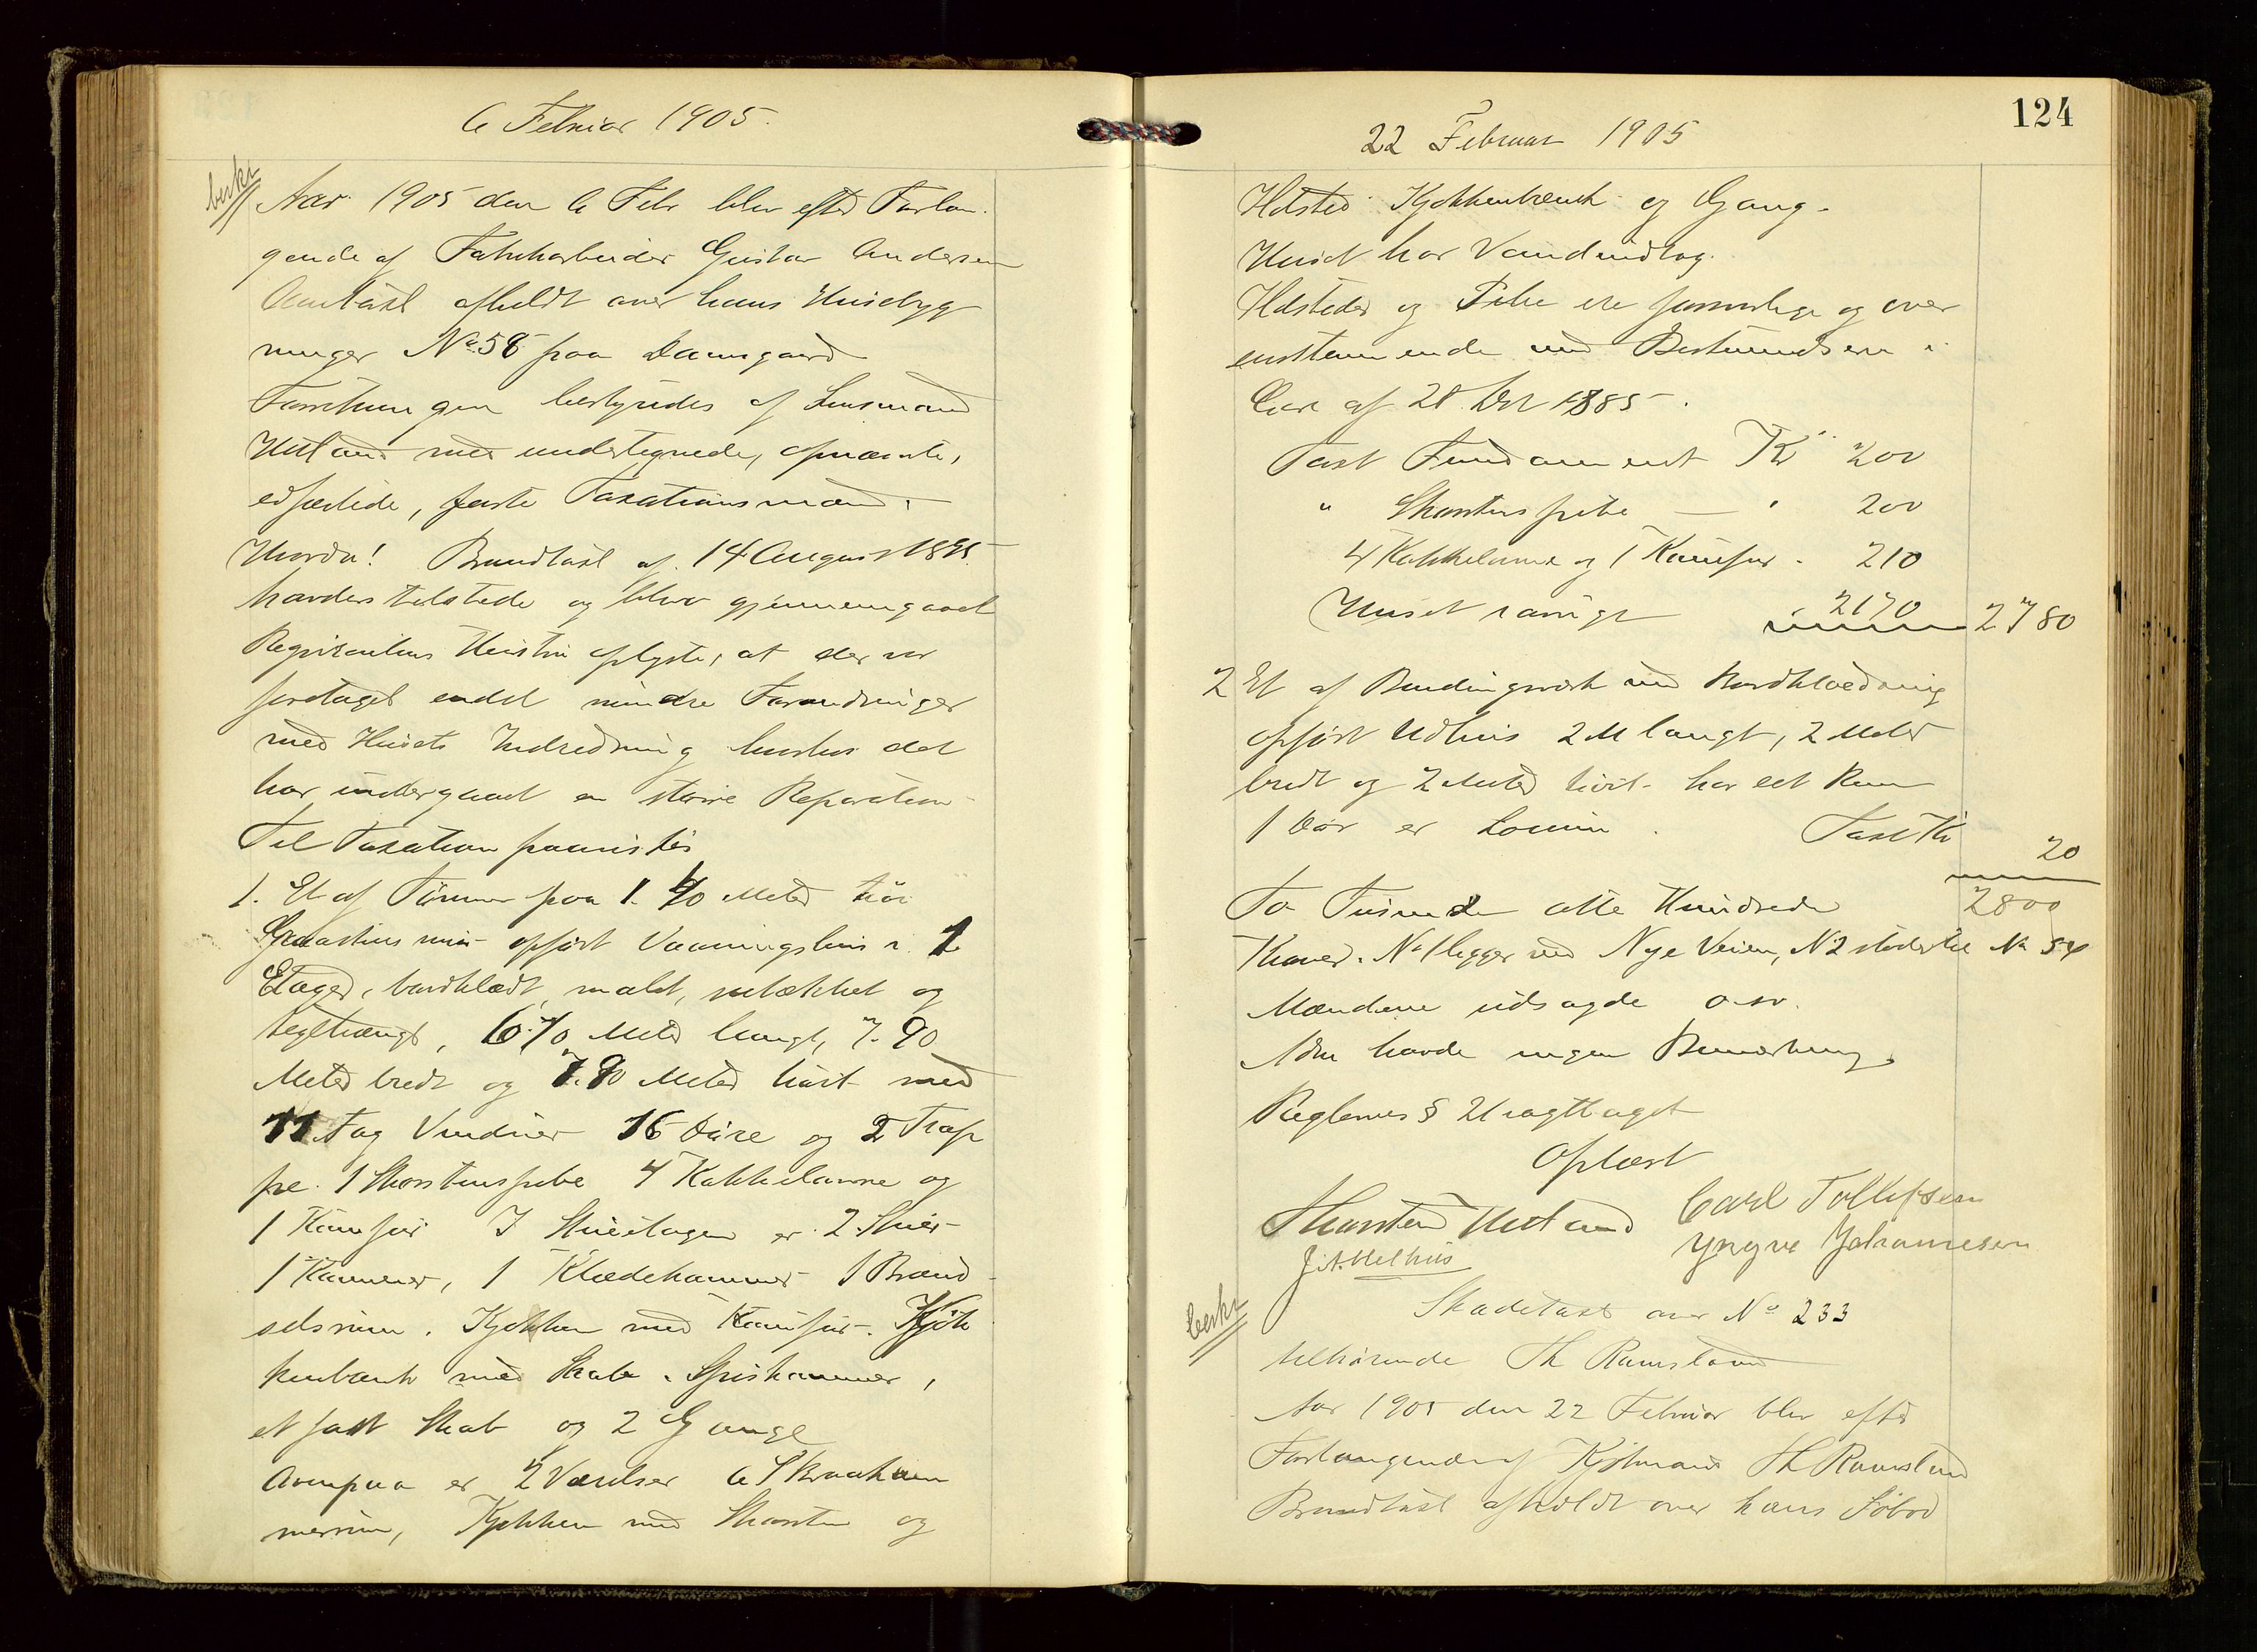 6 Februar 1905.
beskr
Aar 1905 den 6 Febr blev efter Forlan-
gende af Fabrikarbeider Gustav Andersen
Omtaxt afholdt over hans Husebyg
ninger No 58 paa Damsgaard
Forretningen bestyredes af Lensmand
Utland med undertegnede, opnævnte,
edfæstede, faste Taxationsmænd.
Hvorda! Brandtaxt af 14 August 1895
havdes tilstede og blev gjennemgaaet
Rekvirentens Hustru oplyste, at der var
foretaget endel mindre Forandringer
med Husets Indredning hvorhos det
har undergaaet en større Reparation
Til Taxation paavistes
1. Et af Tømmer paa 1.40 Meter høi
Graastens mur opført Vaaningshus i 1
Etager, bordklædt, malt, and
teglhængt, 6.70 Meter langt, 7.90
Meter bredt og 7.90 Meter høit med
11 Fag Vinduer 16 Døre og 2 Trap
per. 1 Skorstenspibe 4 Kakkelovne og
1 Komfur I Stueetagen er 2 Stuer
1 Kammer, 1 Klædekammer 1 Brænd
selsrum. Kjøkken med Komfur. Kjøk
kenbænk med Skabe. Spiskammer,
et fast Skab og 2 Gange
Ovenpaa er 2 Værelser 6 Skraakam
merrum, Kjøkken med Skorsten og
124
22 Februar 1905
Ildsted Kjøkkenbænk og Gang.
Huset har Vandindlæg.
Ildsteder og Pibe ere forsvarlige og over
ensstemmende med Bestemmelserne i
Lov af 28. Dcr 1885.
Taxt Fundament Kr 200
" Skorstenspibe — " 200
4 Kakkelovne og 1 Komfur - 210
Huset iøvrigt " 2170 2780
2 Et af Bindingsværk med Bordklædning
opført Udhus 2 M langt, 2 Meter
bredt og 2 Meter høit. har et Rum
1 Dør Taxt Kr 20
To Tusinde otte Hundrede 2800
Kroner. No 1 ligger ved Nye Veien, N 2 støder til No 54
Mændene udsagde o. sv.
Adm havde ingen Bemærkning.
Reglernes § 21 iagttaget
Oplæst
Thorsten Utland Carl Tollefsen
J. A. Melhus Yngve Johannesen
beskr
Skadetaxt over No 233
tilhørende Th Ramsland
Aar 1905 den 22 Februar blev efter
Forlangende af Kjøbmand Th Ramsland
Brandtaxt afholdt over hans Søbod